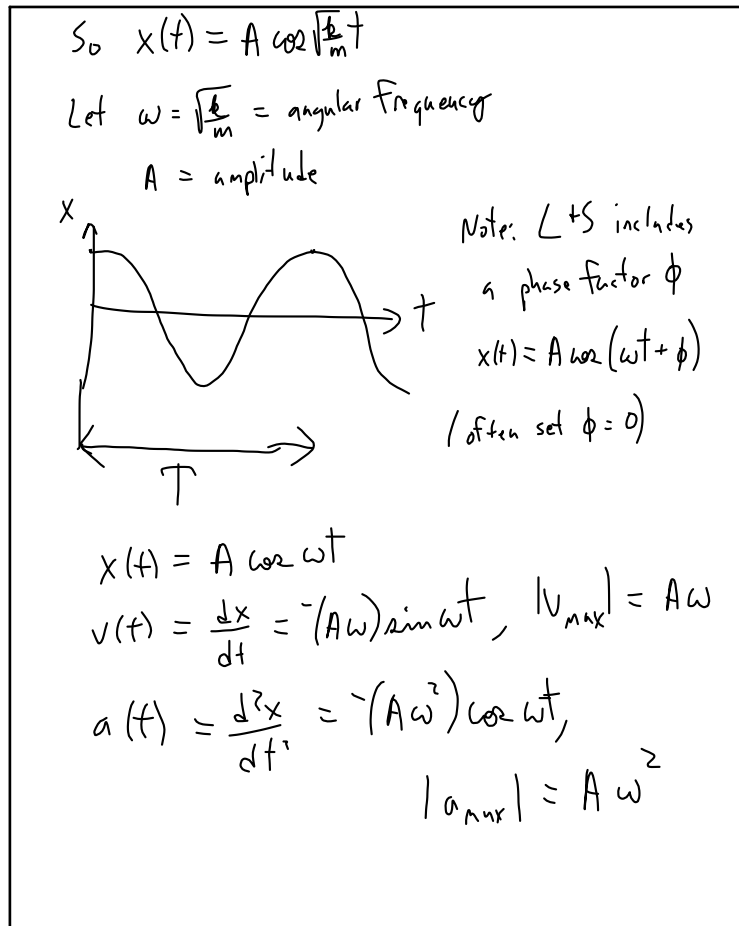 So x(t) = A cos √(k/m) t
Let ω = √(k/m) = angular frequency
A = amplitude
x
t
T
Note: L+S includes
a phase factor ϕ
x(t) = A cos (ωt + ϕ)
(often set ϕ = 0)
x(t) = A cos ωt
v(t) = dx/dt = -(Aω) sin ωt, |v_max| = Aω
a(t) = d²x/dt² = -(Aω²) cos ωt,
|a_max| = Aω²